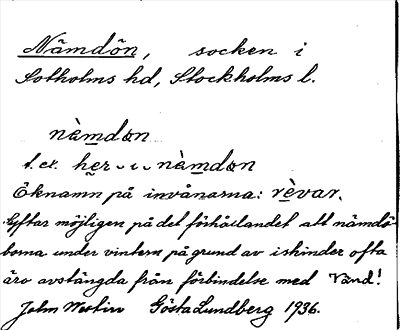 Nämdön, socken i
Sotholms hd, Stockholms l.
nàmdɷn
t. ex. her ᴗ ɩ ᴗ nàmdɷn
Öknamn på invånarna: rèvar.
Syftar möjligen på det förhållandet att nämdö-
borna under vintern på grund av ishinder ofta
äro avstängda från förbindelse med
John Westin Gösta Lundberg 1936.